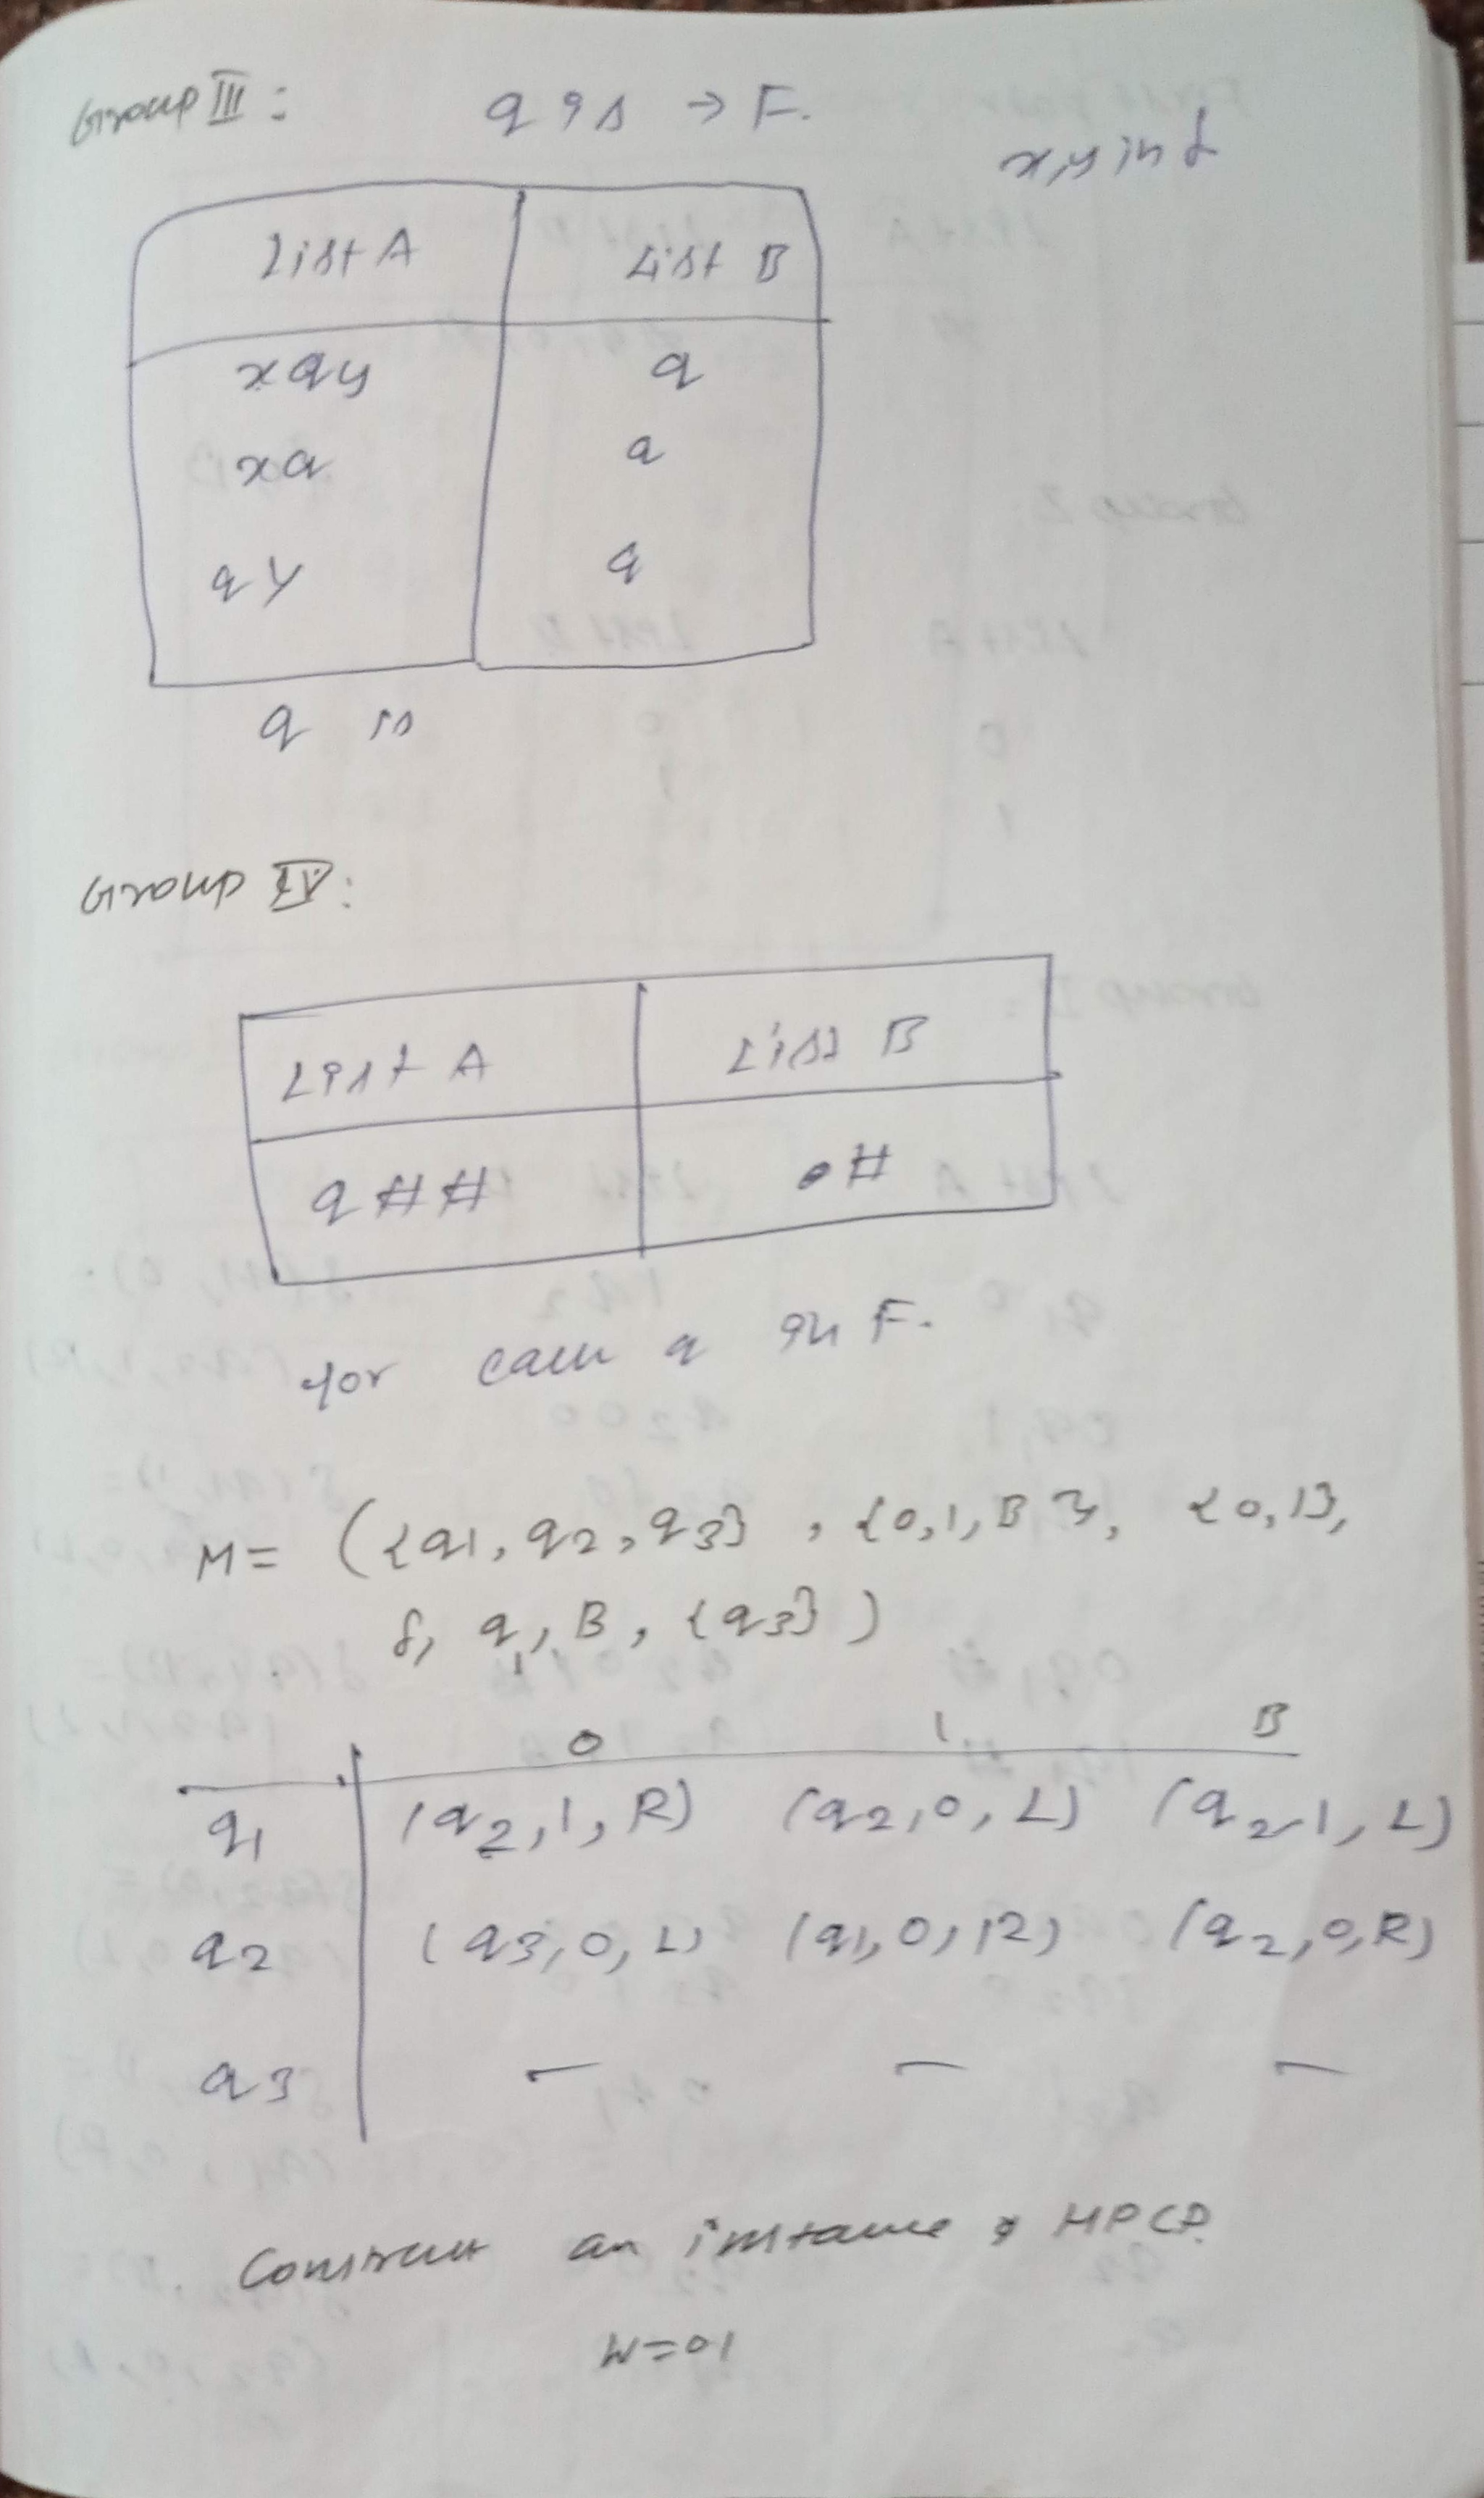 Group III : q is → F.
x, y in L
List A List B
xqy q
xq q
qy q
q is
Group IV :
List A List B
q## #
for each q in F.
M = ({q1, q2, q3}, {0, 1, B}, {0, 1},
δ, q1, B, {q3})
0 1 B
q1 (q2, 1, R) (q2, 0, L) (q2, 1, L)
q2 (q3, 0, L) (q1, 0, R) (q2, 0, R)
q3 — — —
Construct an instance of MPCP.
W=01